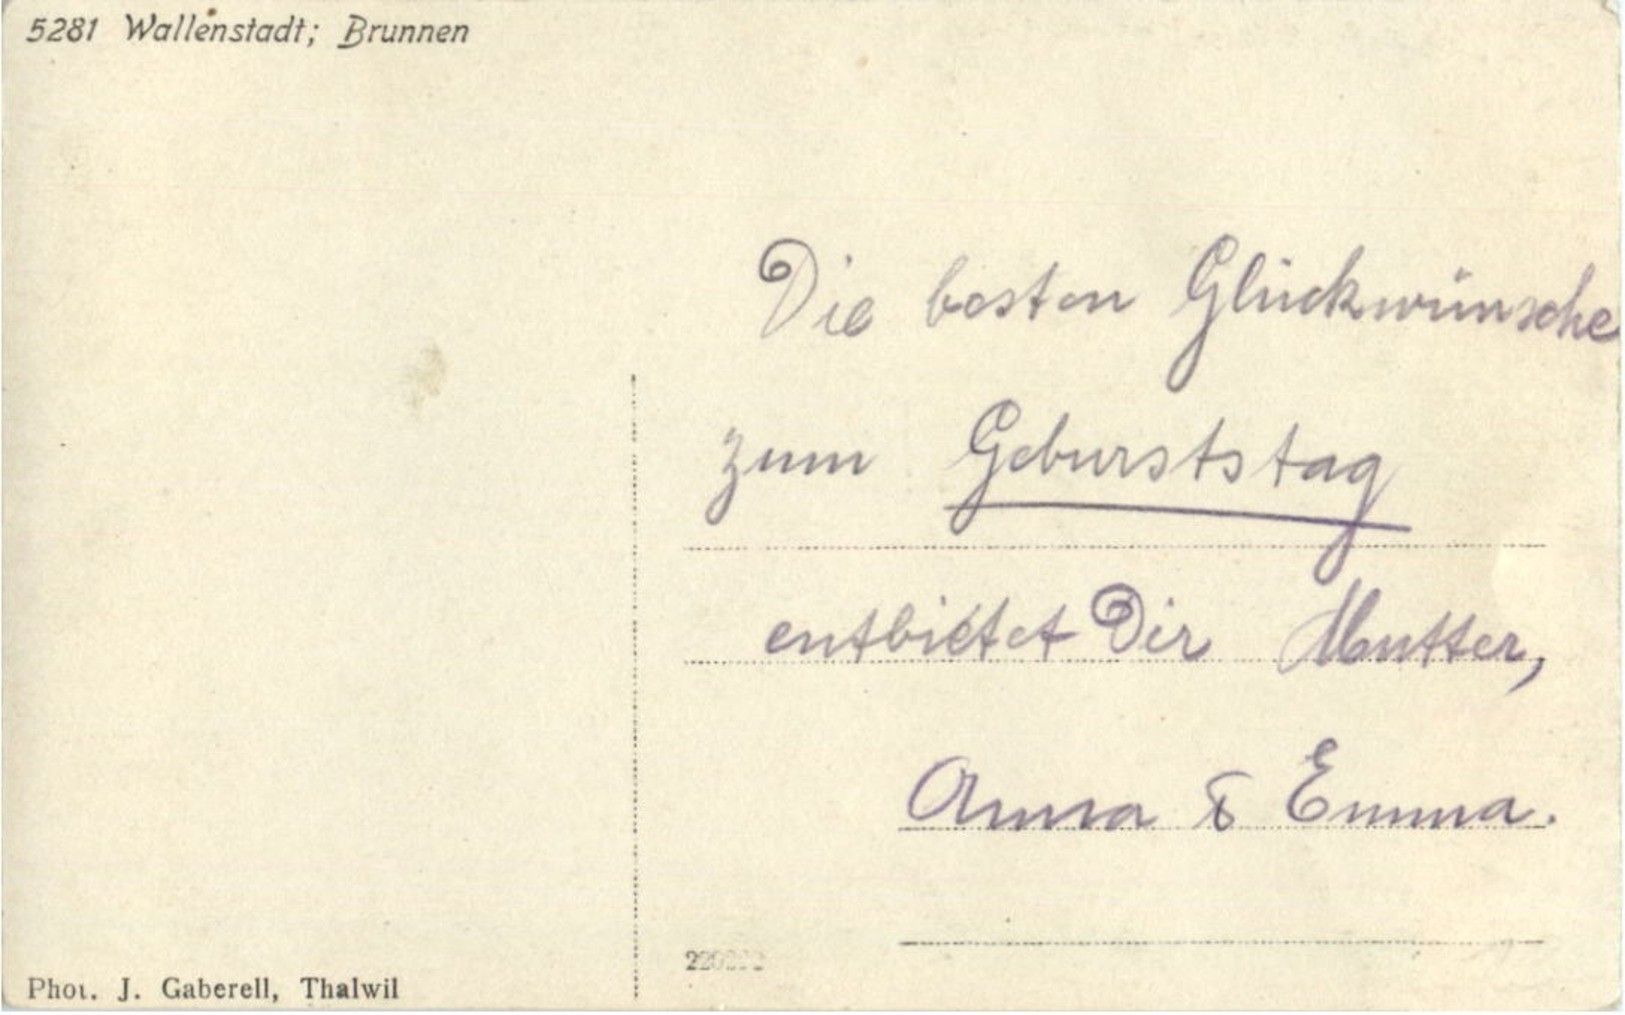 5281 Wallenstadt; Brunnen
Die besten Glückwünsche
zum Geburststag
entbietet Dir Mutter,
Anna & Emma.
Phot. J. Gaberell, Thalwil